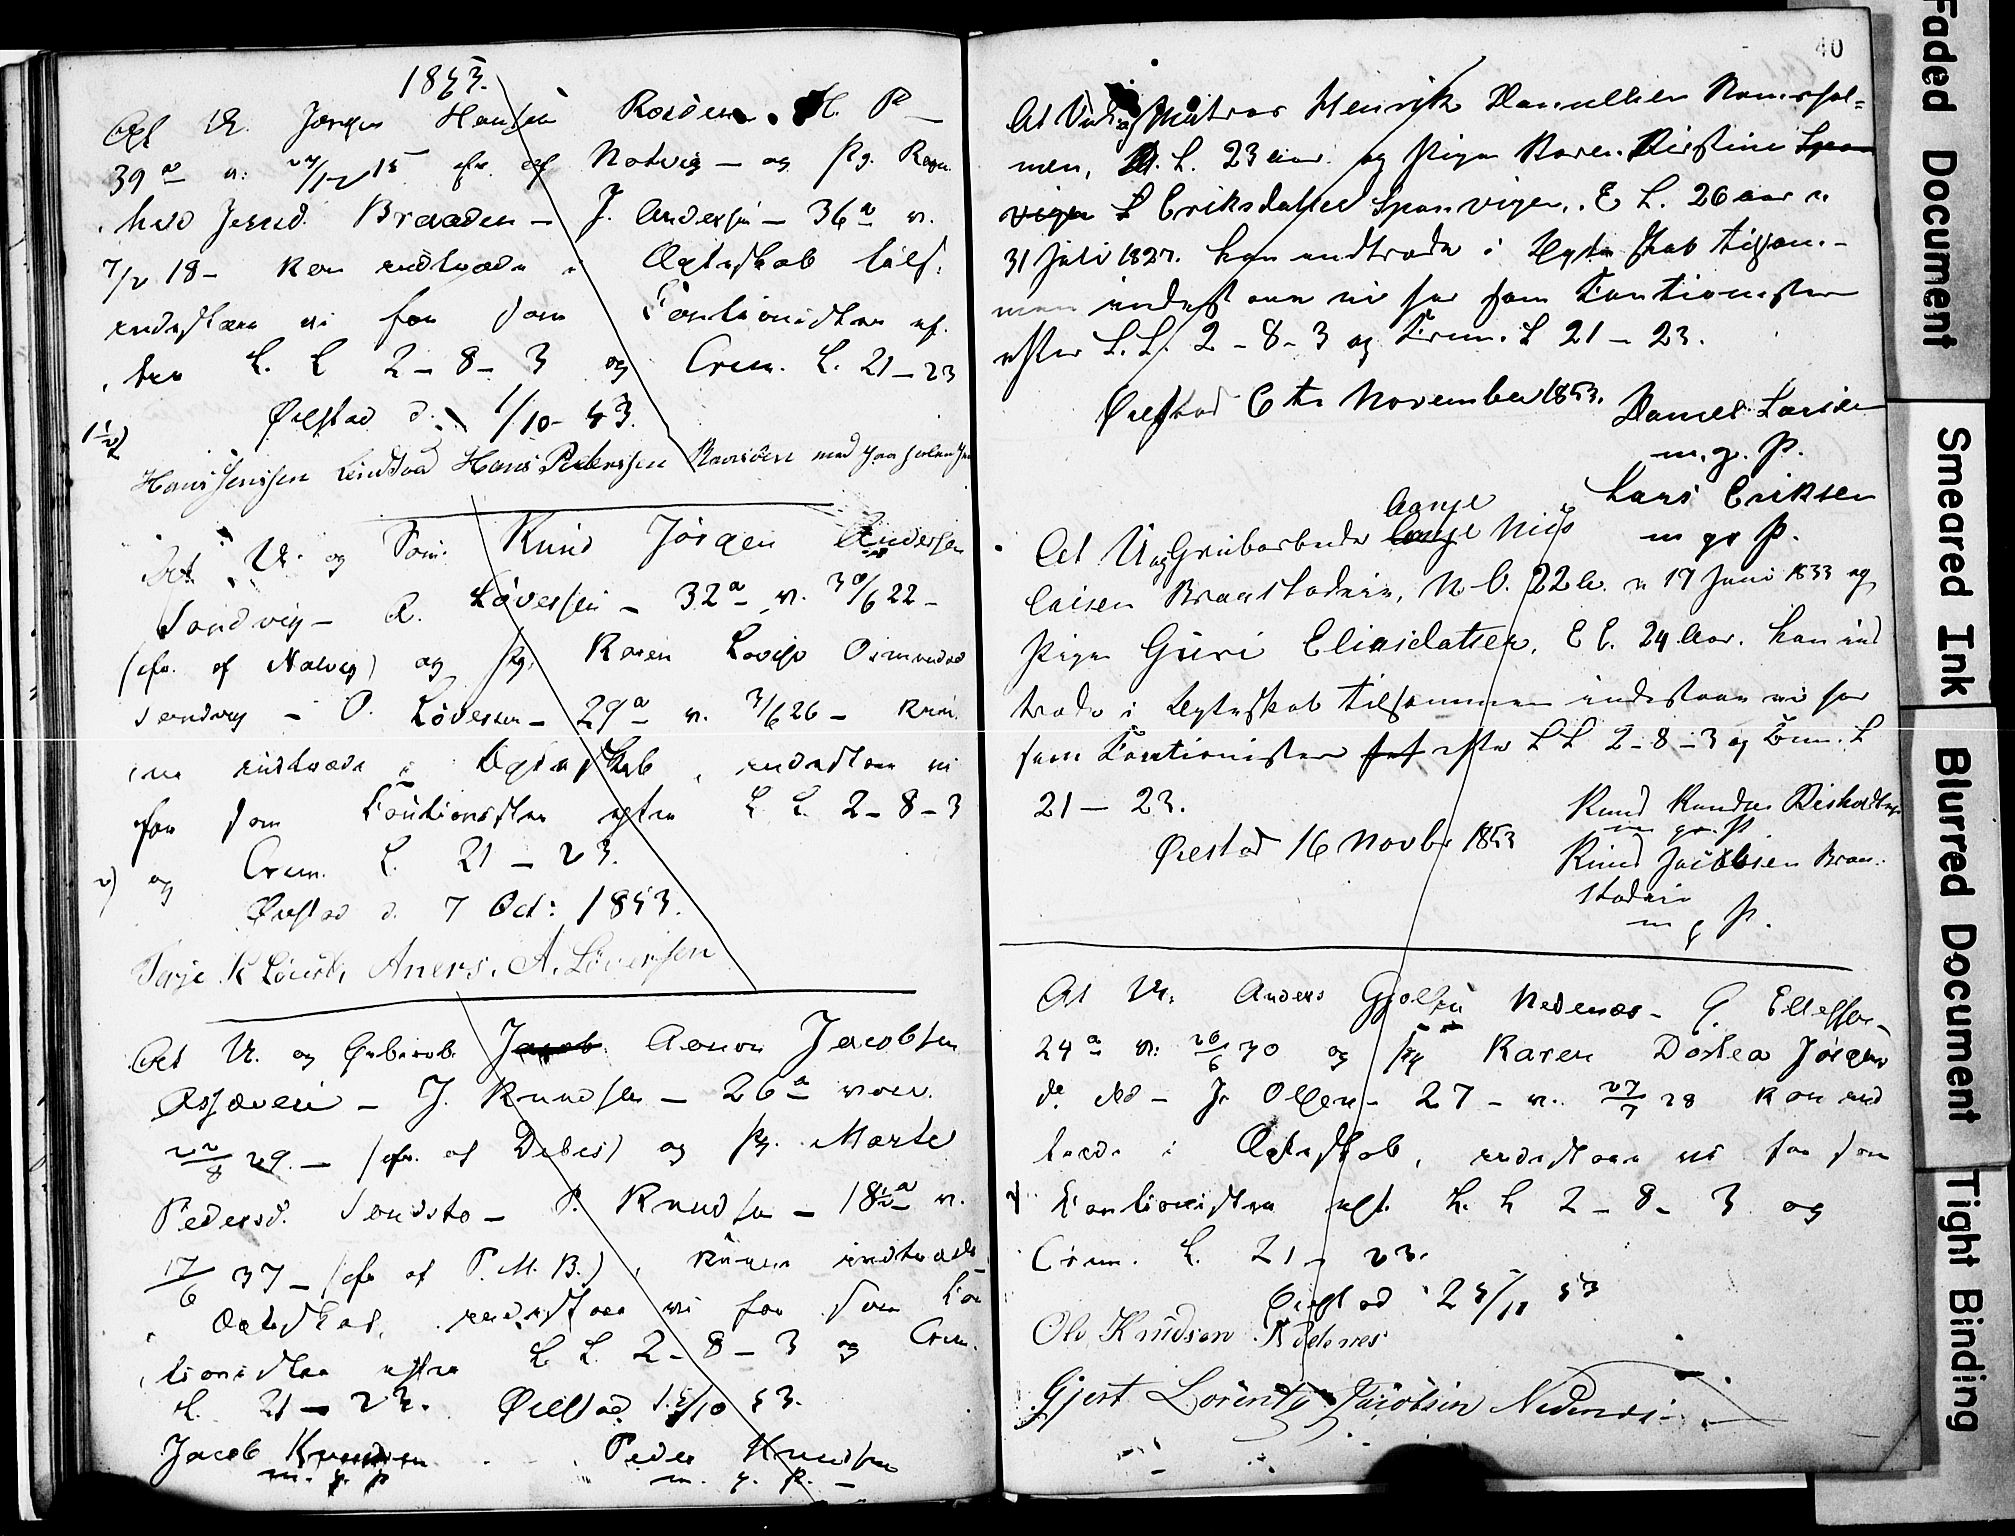 1853.
At U. Jørgen Hansen Rosøen. H. P.
39 a v. 24/12 15 efr. af Natvig – og Pg. Karen
Jensd. Braaden – J. Andersen – 36 a v.
7/2 18 – kan indtræde i Ægteskab tils.
indestaaer vi for som Cautionister ef-
ter L. L. 2 – 8 – 3 og Crim. L. 21 – 23
Øiestad d. 1/10 – 53.
Hans Jenssen Hans Pederssen med paaholden Pen
At U. og Søm. Knud Jørgen Andersen
Sandvig – A. Løvessen – 32 a v. 30/6 22 –
(efr. af Natvig) og Pg. Karen Lovise Osmundsd
Sandvig – O. Løvessen – 29 a v. 3/6 26 – kun-
ne indtræde i Ægteskab, indestaaer vi
for som Cautionister efter L. L. 2 – 8 – 3
2) og Crim. L. 21 – 23.
Øiestad d. 7 Oct: 1853.
Terje K Aners. A. Løvessen
At U. og Grbarb. Jacob Aanon Jacobsen
– J. Knudsen – 26 a vacc.
22/8 29. – (efr. af Debes) og Pg. Marte
Pedersd. – P. Knudsen – 18½ a v.
17/6 37 – (efr. af P. M. B.), kunne indtræde
i Ægteskab, indestaaer vi for som Cau
tionister efter L. L. 2 – 8 – 3 og Crim.
L. 21 – 23. Øiestad 15/10 53.
Jacob Knudsen Peder Knudsen
m. p. P. m. p. P.
40
At Unk. og Matros Henrik Danielsen Ravnehol-
men, D. L. 23 aar og Pigen Karen Kirstine Span
vigen L Eriksdatter Spanvigen, E L. 26 aar v.
31 Juli 1827. kan indtræde i Ægteskab tilsam-
men indestaae vi for som Cautionister
efter L. L. 2 – 8 – 3 og Crim. L 21 – 23.
Øiestad 6te November 1853. Daniel Larsen
m. p. P.
Lars Eriksen
m p P.
Aanje
At U og Grubarbeider Aanje Niels
Braastadeie, N. C. 22 A. v 17 Juni 1833 og
Pigen Guri Eliasdatter, E E. 24 Aar. kan ind
træde i Ægteskab tilsammen indestaae vi for
som Cautionister efter L L 2 – 8 – 3 og Crim. L
21 – 23.
Øiestad 16 Novbr 1853
Knud Knudsen
m p. P
Knud Jacobsen Braa-
stadeie
m p P.
At U. Anders Gjelsen Nedenæs – G. Ellefsen
24 a v. 26/6 30 og Pg Karen Dortea Jørgens
d. ibd – J. Olsen – 27 – v. 27/7 28 kan ind
træde i Ægteskab, indestaae vi for som
Cautionister eft. L. L 2 – 8 – 3 og
Crim. L. 21 – 23.
Øiestad 25/11 53
Ole Knudsen Nedenes
Gjert Lorents Jacobsen Nedenes
Faded Document
Smeared Ink
Blurred Document
Tight Binding